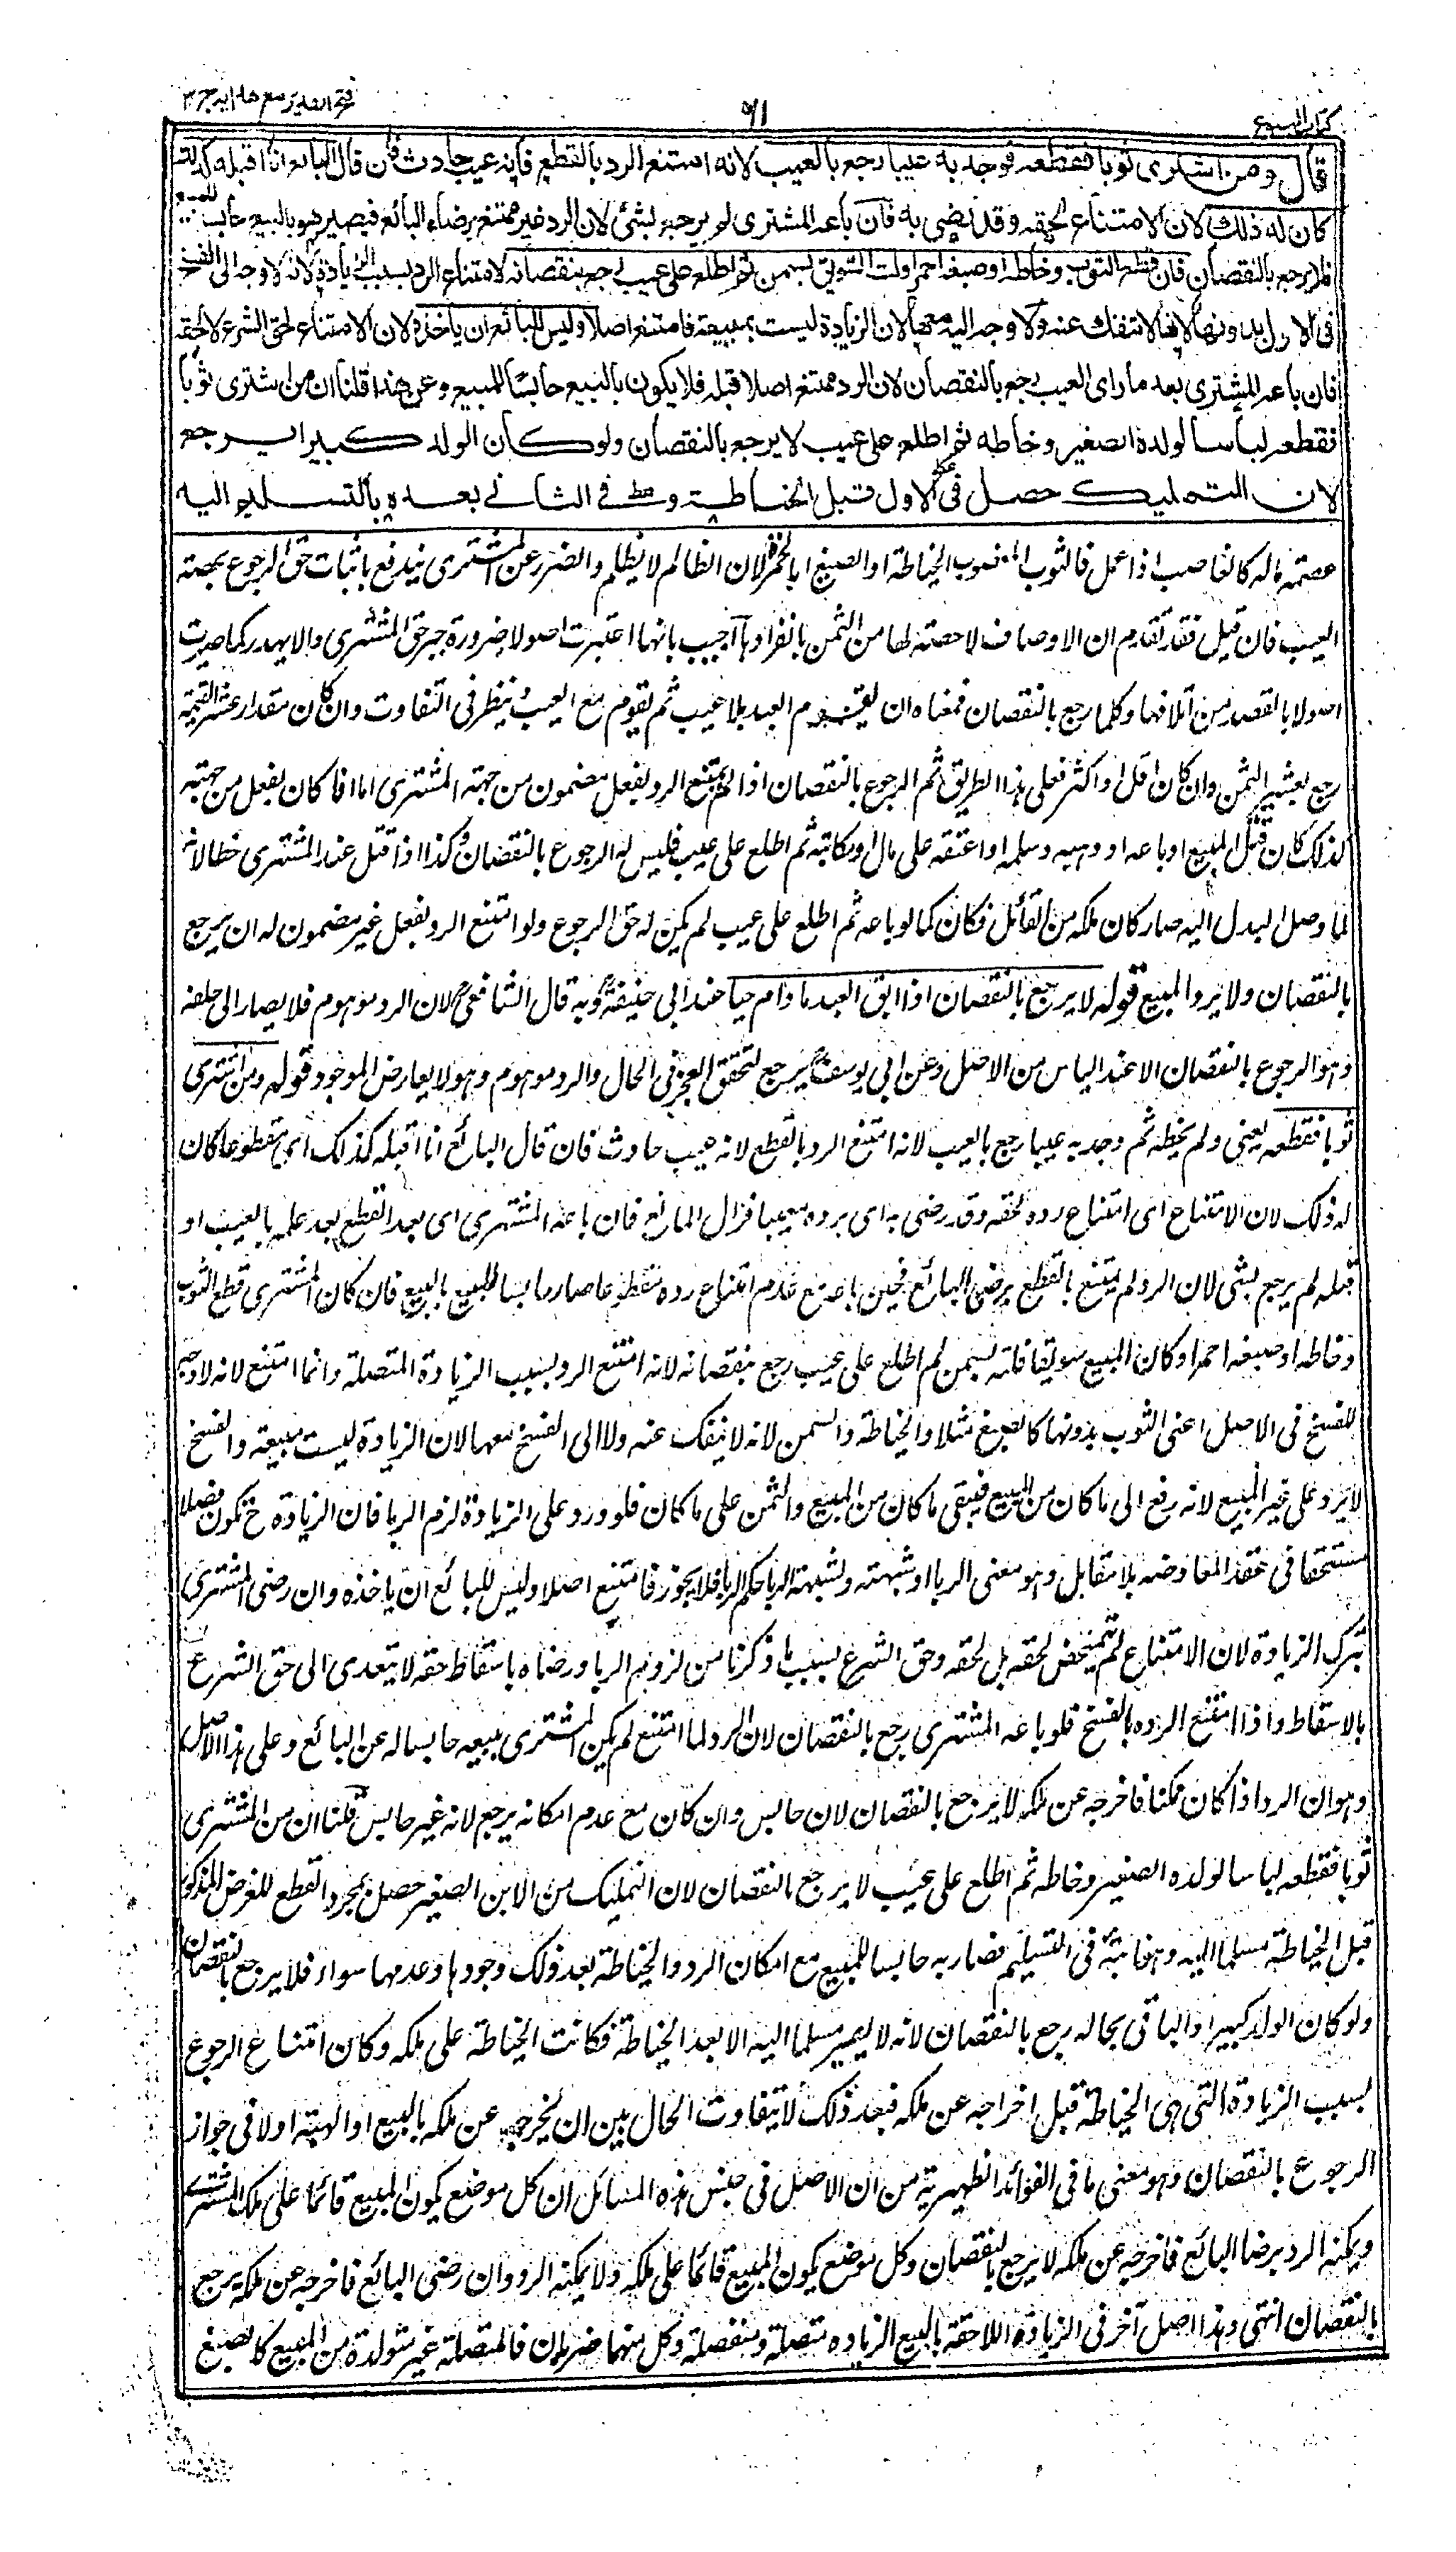 كتاب البيوع
٦١
فتح القدير مع هدايه جر٣
قال ومن اشترى ثوبا فقطعه فوجد به عيبا رجع بالعيب لانه امتنع الرد بالقطع فانه عيب حادث فان قال البائع انا اقبله كذلك
كان له ذلك لان الامتناع لحقه وقد رضى به فان باعه المشترى لم يرجع بشئ لان الرد غير ممتنع برضاء البائع فيصير هو بالبيع حابسا للمبيع
فلا يرجع بالنقصان فان قطع الثوب وخاطه او صبغه احمر او لت السويق بسمن ثم اطلع على عيب رجع بنقصانه لامتناع الرد بسبب الزيادة لانه لا وجه الى الفسخ
فى الاصل بدونها لانها لا تنفك عنه ولا وجه اليه معها لان الزيادة ليست بمبيعة فامتنع اصلا وليس للبائع ان ياخذه لان الامتناع لحق الشرع لا لحقه
فان باعه المشترى بعد ما راى العيب رجع بالنقصان لان الرد ممتنع اصلا قبله فلا يكون بالبيع حابسا للمبيع وعن هذا قلنا ان من اشترى ثوبا
فقطعه لباسا لولده الصغير وخاطه ثم اطلع على عيب لا يرجع بالنقصان ولو كان الولد كبيرا يرجع
لان التمليك حصل فى الاول قبل الخياطة وفى الثانى بعده بالتسليم اليه
عصمة ماله كالغاصب اذا عمل فالثوب المغصوب الخياطة او الصبغ بالحمرة لان الظالم لا يظلم والضرر عن المشترى يندفع باثبات حق الرجوع بحصة
العيب فان قيل فقد تقدم ان الاوصاف لا حصة لها من الثمن بانفرادها اجيب بانها اعتبرت اصولا ضرورة جبر حق المشترى والا يهدر كما صيرت
اصولا بالقصد من اتلافها وكلما رجع بالنقصان فمعناه ان يقوم العبد بلا عيب ثم يقوم مع العيب وينظر فى التفاوت وان كان مقدار عشر القيمة
رجع بعشر الثمن وان كان اقل او اكثر فعلى هذا الطريق ثم الرجوع بالنقصان اذا لم يمتنع الرد بفعل مضمون من جهة المشترى اما اذا كان بفعل من جهته
كذلك كان قتل المبيع او باعه او وهبه وسلمه او اعتقه على مال او كاتبه ثم اطلع على عيب فليس له الرجوع بالنقصان وكذا اذا قتل عند المشترى خطا لانه
لما وصل البدل اليه صار كان ملكه من القاتل فكان كما لو باعه ثم اطلع على عيب لم يكن له حق الرجوع ولو امتنع الرد بفعل غير مضمون له ان يرجع
بالنقصان ولا يرد المبيع قوله لا يرجع بالنقصان اذا ابق العبد ما دام حيا عند ابى حنيفة وبه قال الشافعى لان الرد موهوم فلا يصار الى خلفه
وهو الرجوع بالنقصان الا عند الياس من الاصل وعن ابى يوسف يرجع لتحقق العجز فى الحال والرد موهوم وهو لا يعارض الموجود قوله ومن اشترى
ثوبا فقطعه يعنى ولم يخطه ثم وجد به عيبا رجع بالعيب لانه امتنع الرد بالقطع لانه عيب حادث فان قال البائع انا اقبله كذلك اى مقطوعا كان
له ذلك لان الامتناع اى امتناع رده لحقه وقد رضى به اى برده معيبا فزال المانع فان باعه المشترى اى بعد القطع بعد علمه بالعيب او
قبله لم يرجع بشئ لان الرد لم يمتنع بالقطع برضى البائع فحين باعه مع عدم امتناع رده مقطوعا صار حابسا للمبيع بالبيع فان كان المشترى قطع الثوب
وخاطه او صبغه احمر او كان المبيع سويقا فلته بسمن ثم اطلع على عيب رجع بنقصانه لانه امتنع الرد بسبب الزيادة المتصلة وانما امتنع لانه لا وجه
للفسخ فى الاصل اعنى الثوب بدونها كالصبغ مثلا والخياطة والسمن لانه لا ينفك عنه ولا الى الفسخ معها لان الزيادة ليست مبيعة والفسخ
لا يرد على غير المبيع لانه رفع الى ما كان من المبيع فيبقى ما كان من المبيع والثمن على ما كان فلو ورد على الزيادة لزم الربا فان الزيادة ح تكون فضلا
مستحقا فى عقد المعاوضة بلا مقابل وهو معنى الربا او شبهته ولشبهة الربا حكم الربا فلا يجوز فامتنع اصلا وليس للبائع ان ياخذه وان رضى المشترى
بترك الزيادة لان الامتناع لم يتمحض لحقه بل لحقه وحق الشرع بسبب ما ذكرنا من لزوم الربا ورضاه باسقاط حقه لا يتعدى الى حق الشرع
بالاسقاط واذا امتنع الرد بالفسخ فلو باعه المشترى رجع بالنقصان لان الرد لما امتنع لم يكن المشترى ببيعه حابسا له عن البائع وعلى هذا الاصل
وهو ان الرد اذا كان ممكنا فاخرجه عن ملكه لا يرجع بالنقصان لان حابس وان كان مع عدم امكانه يرجع لانه غير حابس قلنا ان من اشترى
ثوبا فقطعه لباسا لولده الصغير وخاطه ثم اطلع على عيب لا يرجع بالنقصان لان التمليك من الابن الصغير حصل بمجرد القطع للغرض المذكور
قبل الخياطة مسلما اليه وهو نائبه فى التسليم فصار به حابسا للمبيع مع امكان الرد والخياطة بعد ذلك وجودها وعدمها سواء فلا يرجع بالنقصان
ولو كان الولد كبيرا والباقى بحاله يرجع بالنقصان لانه لا يصير مسلما اليه الا بعد الخياطة فكانت الخياطة على ملكه وكان امتناع الرجوع
بسبب الزيادة التى هى الخياطة قبل اخراجه عن ملكه فبعد ذلك لا يتفاوت الحال بين ان يخرجه عن ملكه بالبيع او الهبة او لا فى جواز
الرجوع بالنقصان وهو معنى ما فى الفوائد الظهيرية من ان الاصل فى جنس هذه المسائل ان كل موضع يكون المبيع قائما على ملك المشترى
ويمكنه الرد برضا البائع فاخرجه عن ملكه لا يرجع بالنقصان وكل موضع يكون المبيع قائما على ملكه ولا يمكنه الرد وان رضى البائع فاخرجه عن ملكه يرجع
بالنقصان انتهى وهذا اصل آخر فى الزيادة اللاحقة بالمبيع الزياده متصلة ومنفصلة وكل منهما ضربان فالمتصلة غير متولدة من المبيع كالصبغ